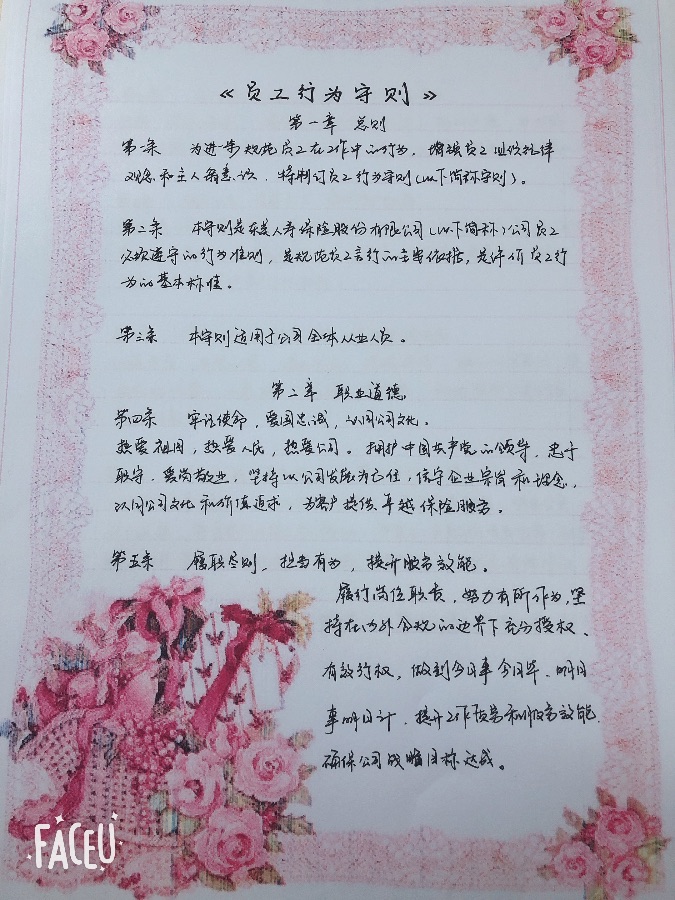 《员工行为守则》
第一章 总则
第一条 为进一步规范员工在工作中的行为，增强员工组织纪律
观念和主人翁意识，特制订员工行为守则（以下简称守则）。
第二条 本守则是东吴人寿保险股份有限公司（以下简称）公司员工
必须遵守的行为准则，是规范员工言行的主要依据，是评价员工行
为的基本标准。
第三条 本守则适用于公司全体从业人员。
第二章 职业道德
第四条 牢记使命，爱国忠诚，认同公司文化。
热爱祖国，热爱人民，热爱公司。拥护中国共产党的领导，忠于
职守，爱岗敬业，坚持以公司发展为己任，信守企业宗旨和理念，
认同公司文化和价值追求，为客户提供卓越保险服务。
第五条 履职尽则，担当有为，提升服务效能。
履行岗位职责，努力有所作为，坚
持在内外合规的边界下充分授权、
有效行权，做到今日事今日毕、明日
事明日计，提升工作质量和服务效能，
确保公司战略目标达成。
FACEU